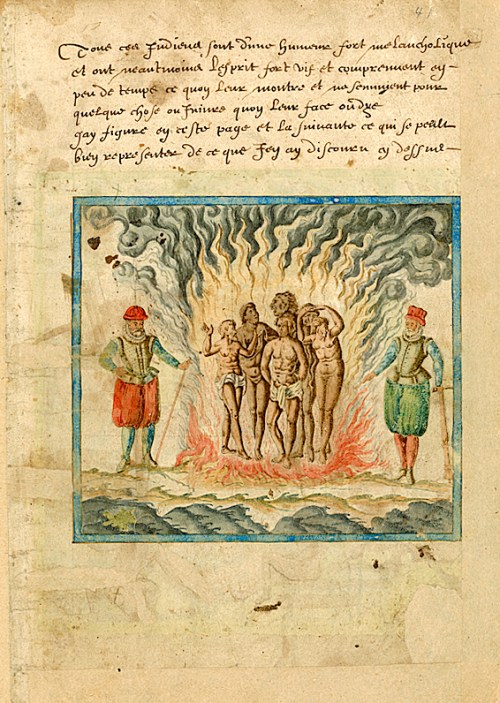 4
Tous ces Indiens sont d'une humeur fort melancholique
et ont neantmoins l'esprit fort vif et comprennent en
peu de temps ce quoy leur monstre et ne s'ennuient pour
quelque chose ou Iniure quoy leur face ou dye
Jay figuré en ceste page et la suivante ce qui se peult
bien representer de ce que Jey ay discouru cy dessus